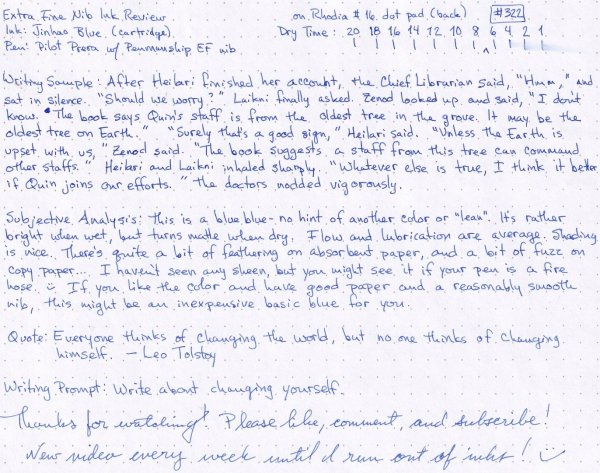 Extra Fine Nib Ink Review on Rhodia #16 dot pad (back) #322
Ink: Jinhao Blue (cartridge) Dry Time: 20 18 16 14 12 10 8 6 4 2 1
Pen: Pilot Prera w/ Penmanship EF nib
Writing Sample: After Heilari finished her account, the Chief Librarian said, "Hmm," and
sat in silence. "Should we worry?" Laikni finally asked. Zenod looked up and said, "I don't
know. The book says Quin's staff is from the oldest tree in the grove. It may be the
oldest tree on Earth." "Surely that's a good sign," Heilari said. "Unless the Earth is
upset with us," Zenod said. "The book suggests a staff from this tree can command
other staffs." Heilari and Laikni inhaled sharply. "Whatever else is true, I think it better
if Quin joins our efforts." The doctors nodded vigorously.
Subjective Analysis: This is a blue blue - no hint of another color or "lean". It's rather
bright when wet, but turns matte when dry. Flow and lubrication are average. Shading
is nice. There's quite a bit of feathering on absorbent paper, and a bit of fuzz on
copy paper... I haven't seen any sheen, but you might see it if your pen is a fire
hose. :) If you like the color and have good paper and a reasonably smooth
nib, this might be an inexpensive basic blue for you.
Quote: Everyone thinks of changing the world, but no one thinks of changing
himself. - Leo Tolstoy
Writing Prompt: Write about changing yourself.
Thanks for watching! Please like, comment, and subscribe!
New video every week until I run out of inks! :)